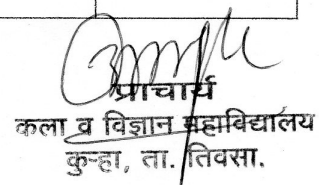 प्राचार्य
कला व विज्ञान महाविद्यालय
कुऱ्हा, ता. तिवसा.